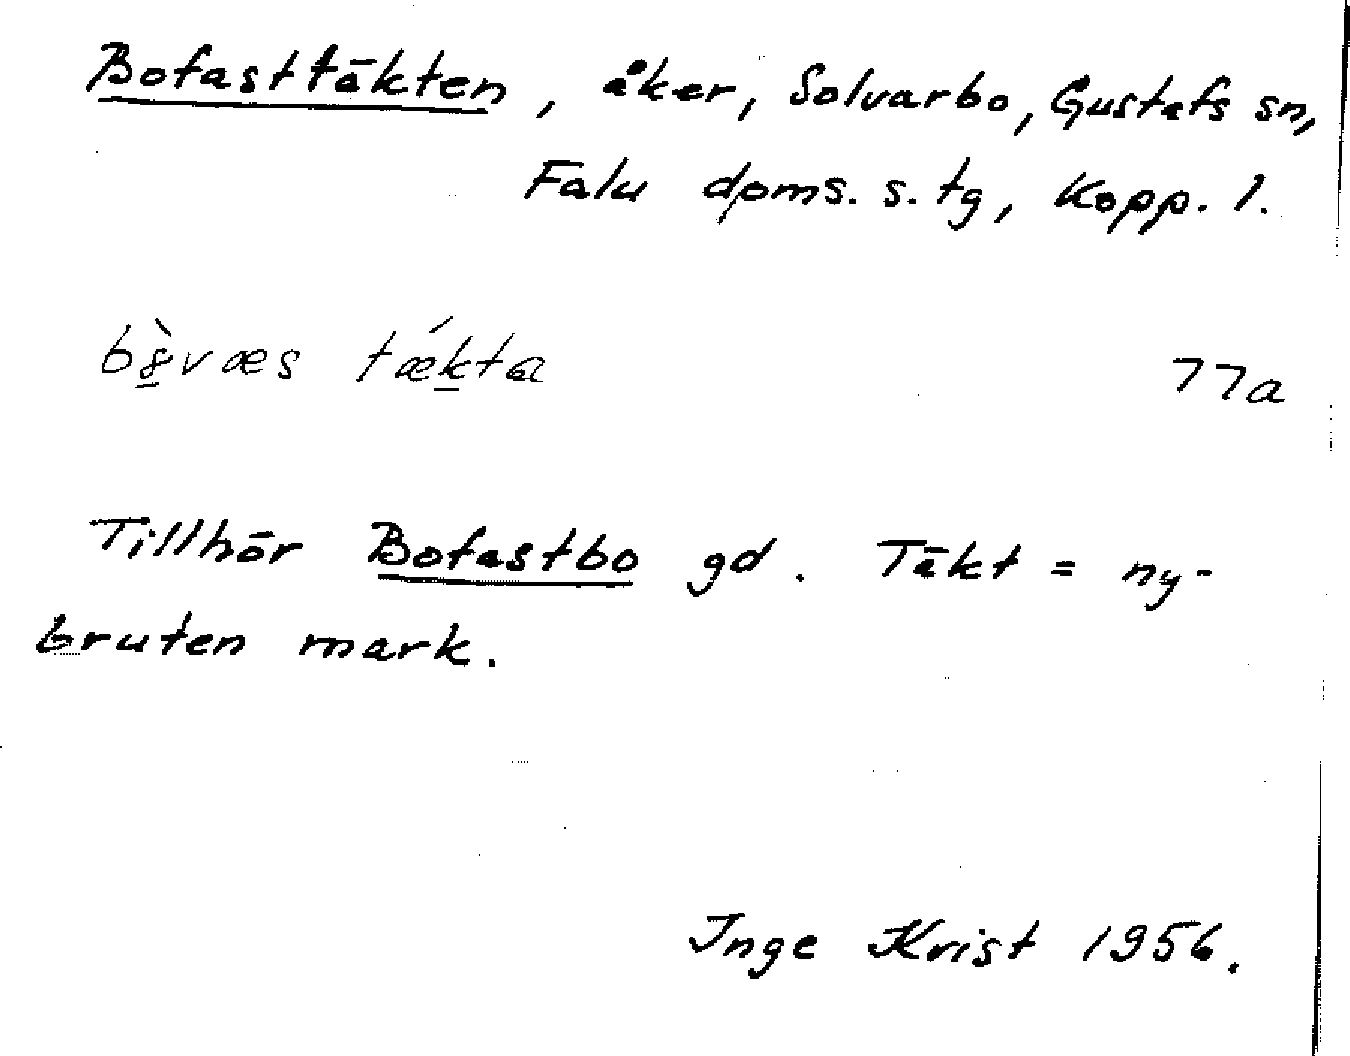 Bofasttäkten, åker, Solvarbo, Gustafs sn,
Falu dpms. s. tg, Kopp. l.
tækta 77a
Tillhör Bofastbo gd. Täkt = ny-
bruten mark.
Inge Krist 1956.